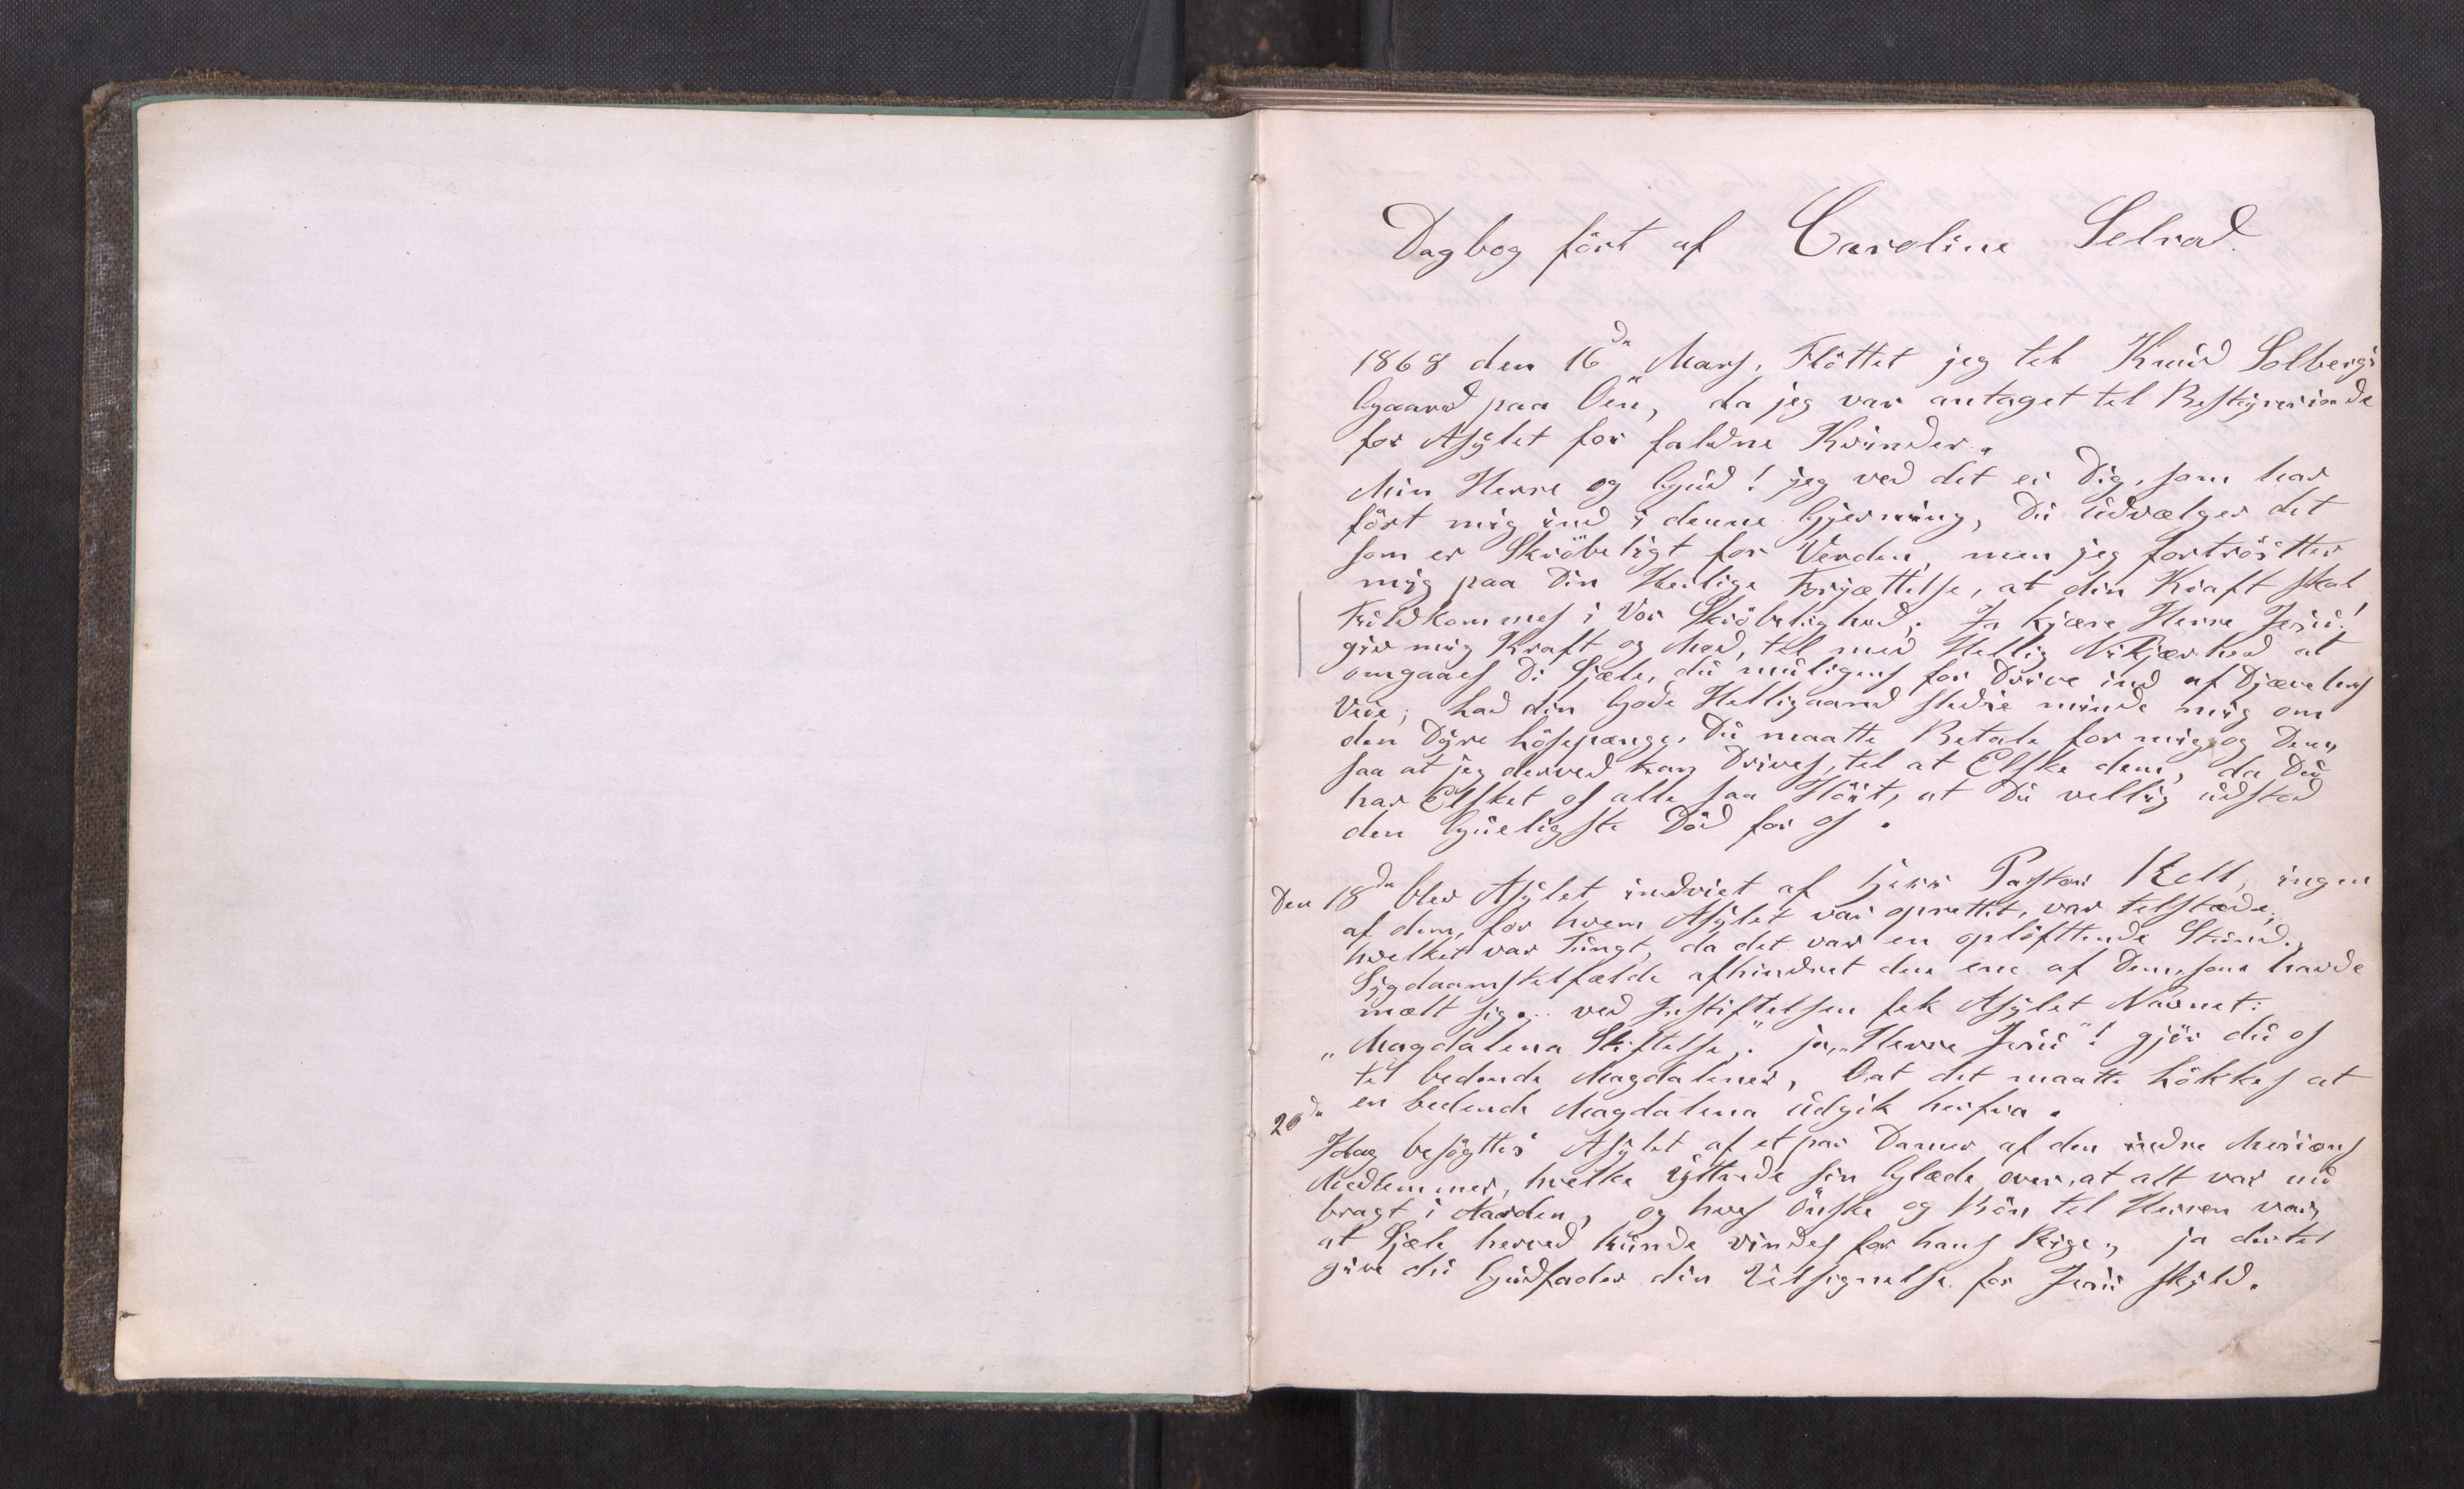 Dagbog fört af Caroline Selvad.
1868 den 16de Mars, Flöttet jeg tel Knud Solbergs
Gaard paa Öen, da jeg var antaget tel Bestÿrerinde
for Asÿlet for faldne Kvinder.
Min Herre og Gud! jeg ved det er Dig, som har
fört mig ind i denne Gjerning, Du udvælger det
som er Skröbeligt for Verden, men jeg fortröster
mig paa Din Hellige Forjættelse, at din Kraft skal
Fuldkommes i Vor Skröbelighed; Ja kjære Herre Jesu!
giv mig Kraft og Mod, tel med Hellig Nidkjærhed at
omgaaes Di Sjæle, du muligens for Drive ind af Djævelens
Veie; lad din Gode Helligaand stedse minde mig om
den Dÿre Lösepenge, Du maatte Betale for mig, og Dem,
saa at jeg derved kan Drives, tel at Elske dem, da Du
har Elsket os alle saa Höit, at Du vellig udstod
den Gueligste Död for os.
Den 18de blev Asÿlet indviet af Herr Pastor Kell, ingen
af dem, for hvem Asÿlet var oprettet, var telstæde;
hvelket var Tungt, da det var en oplöfttende Stund.,
Sÿgdaamstelfælde afhindret den ene af Dem, som havde
mælt sig. ved Instiftelsen fek Asÿlet Navnet:
"Magdalena Stiftelse," ja, "Herre Jesu"! gjör du os
tel bedende Magdalener, O, at det maatte Lökkes at
en bedende Magdalena udgik herfra.
20de
Idag besögttes Asÿlet af et par Damer af den indre Missions
Medlemmer, hvelke ÿttrede sin Glæde over, at alt var nu
bragt i Orden, og hves Önske og Bön tel Herren var,
at Sjæle herved kunde vindes for hans Rige., ja dertel
give du Gudfader din Velsignelse for Jesu skÿld.